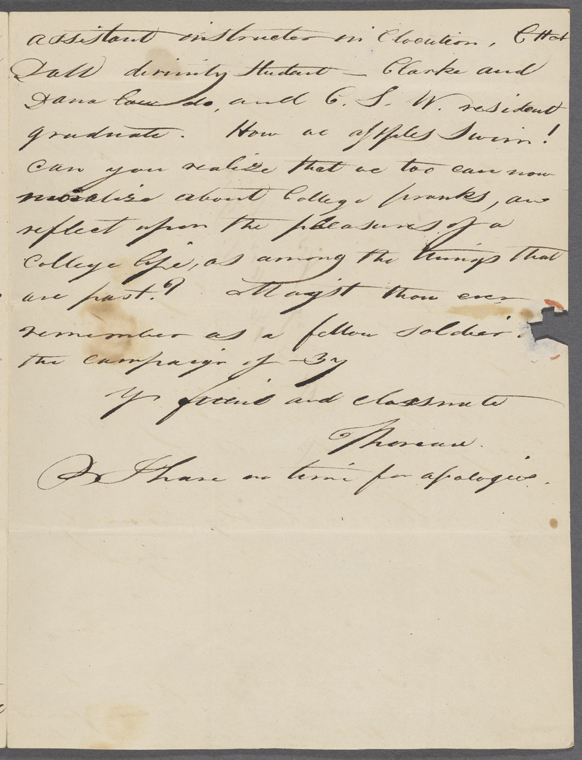 assistant instructor in Elocution, C Hat
Dall divinity student — Clarke and
Dana law do, and C. S. W. resident
graduate. How we apples swim!
can you realize that we too can now
moralize about College pranks, and
reflect upon the pleasures of a
college life, as among the things that
are past? Mayst thou ever
remember as a fellow soldier
the campaign of 37
Yr friend and classmate
Thoreau.
I have no time for apologies.